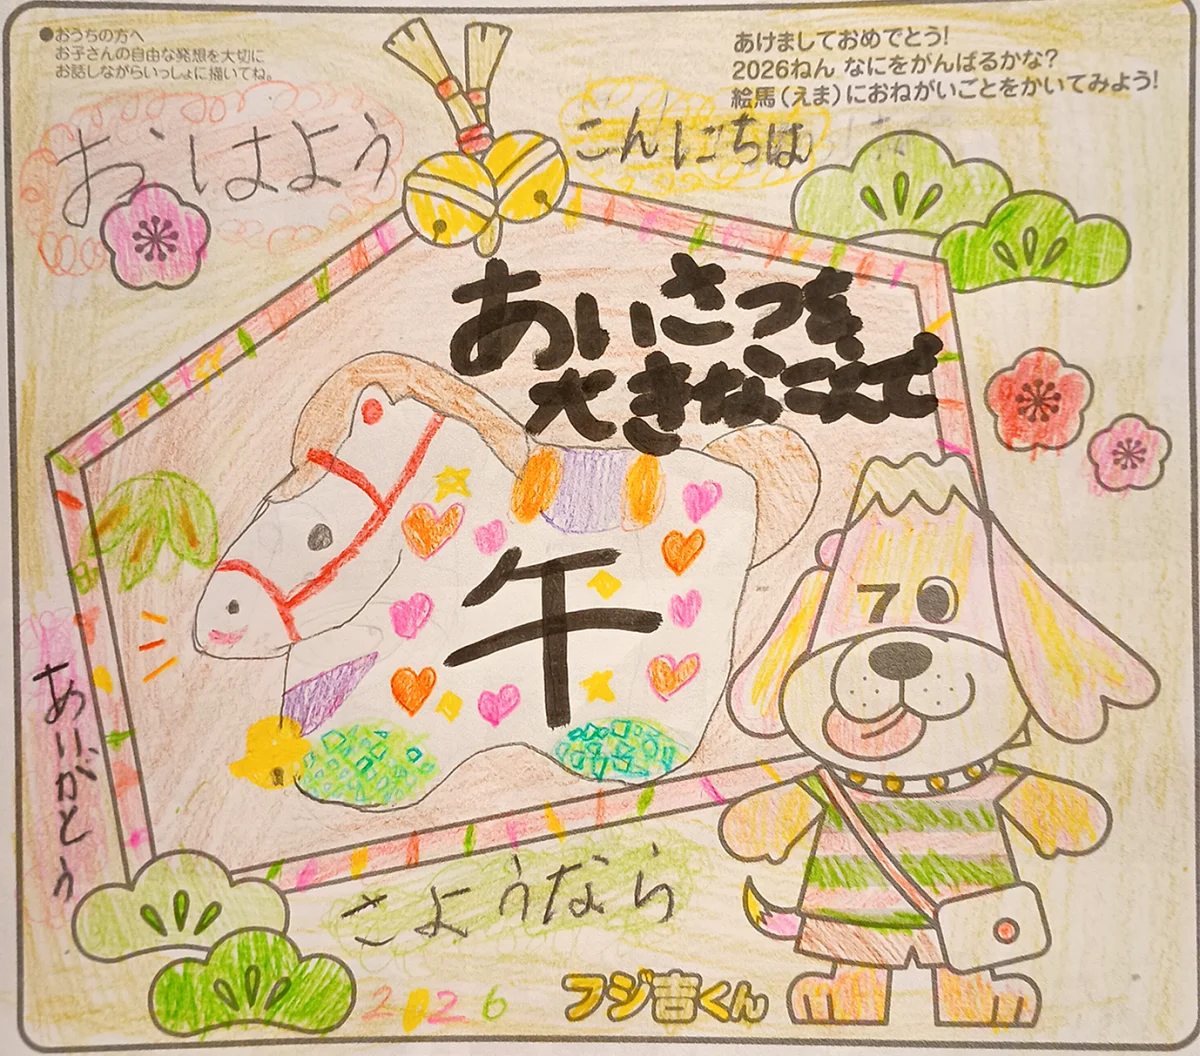 ●おうちの方へ
お子さんの自由な発想を大切に
お話しながらいっしょに描いてね。
あけましておめでとう!
2026ねん なにをがんばるかな?
絵馬(えま)におねがいごとをかいてみよう!
おはよう
こんにちは
あいさつを
大きなこえで
午
ありがとう
さようなら
2026
フジ吉くん